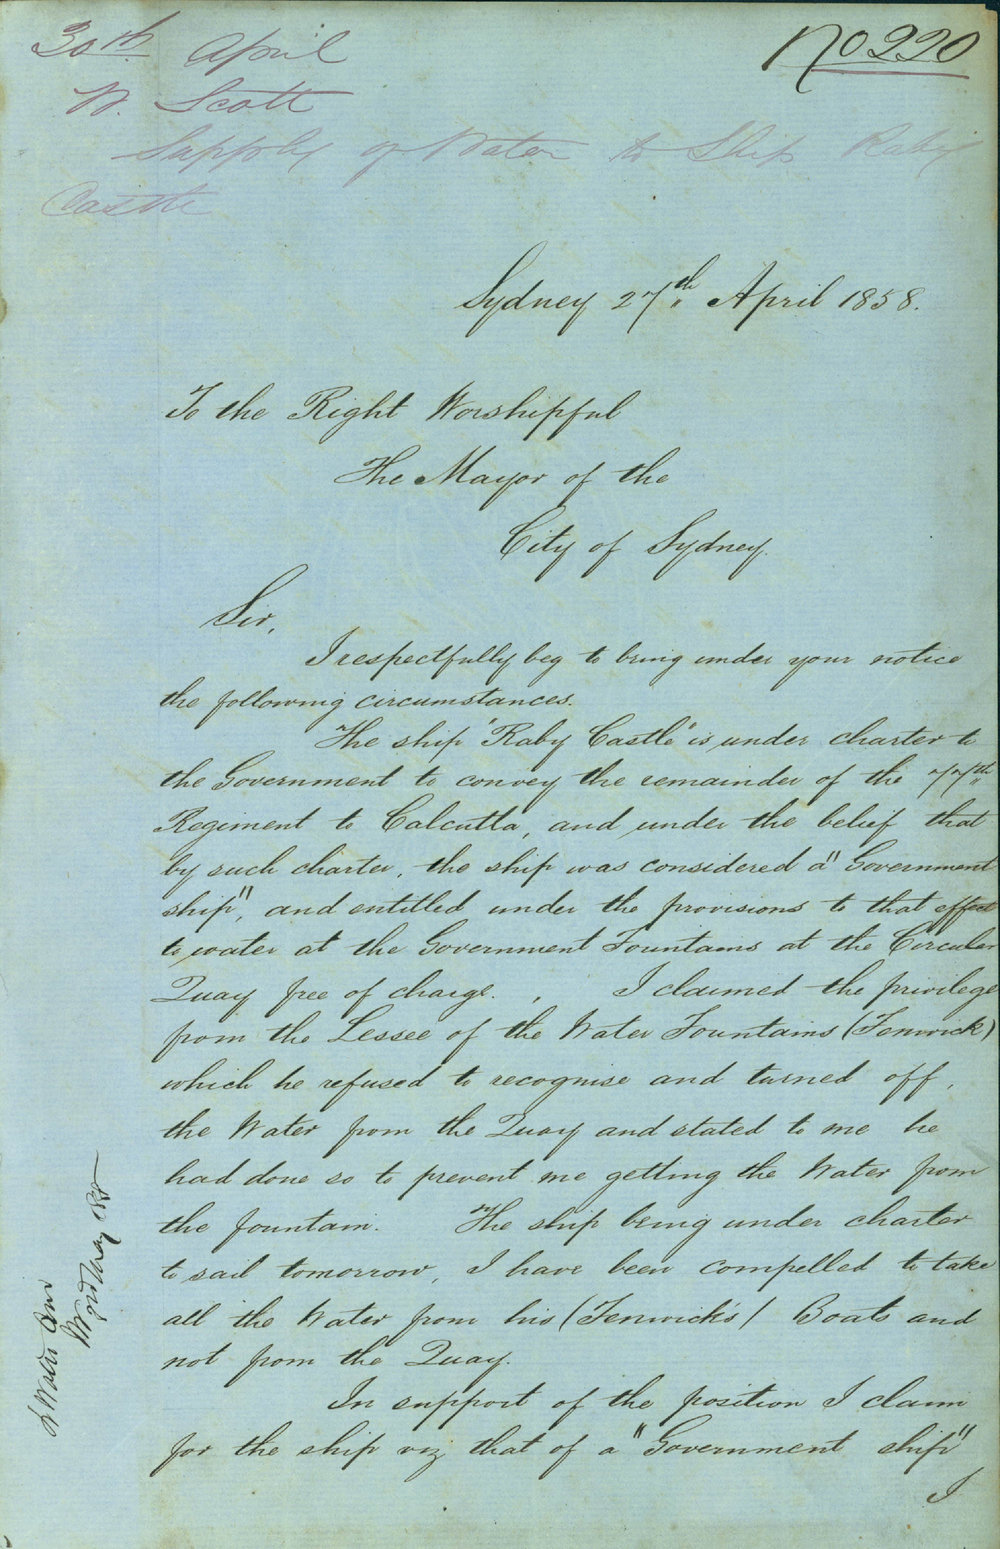 30th April
No 220
W. Scott
Supply of Water to Ship Raby
Castle
Sydney 27th April 1858.
To the Right Worshipful
The Mayor of the
City of Sydney.
Sir,
I respectfully beg to bring under your notice
the following circumstances.
The ship "Raby Castle" is under charter to
the Government to convey the remainder of the 77th
Regiment to Calcutta, and under the belief that
by such charter, the ship was considered a "Government
ship", and entitled under the provisions to that effect
to water at the Government Fountains at the Circular
Quay free of charge. , I claimed the privilege
from the Lessee of the Water Fountains (Fenwick)
which he refused to recognise and turned off,
the Water from the Quay and stated to me he
had done so to prevent me getting the Water from
the fountain. The ship being under charter
to sail tomorrow, I have been compelled to take
all the Water from his (Fenwick's) Boats and
not from the Quay.
In support of the position I claim
for the ship viz that of a "Government ship"
I
Water
May